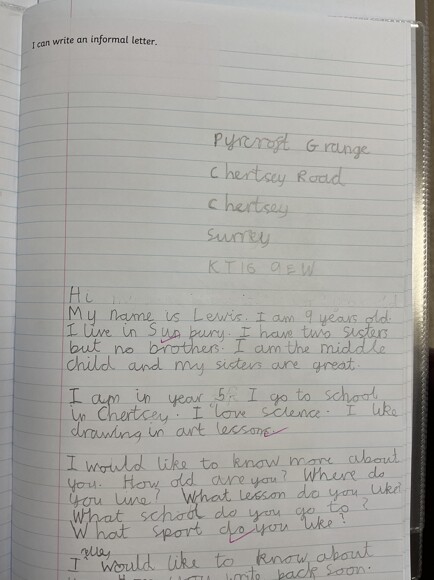 I can write an informal letter.
Pyrcroft Grange
Chertsey Road
Chertsey
Surrey
KT16 9EW
Hi
My name is Lewis. I am 9 years old.
I live in Sunbury. I have two sisters
but no brothers. I am the middle
child and my sisters are great.
I am in year 5. I go to school
in Chertsey. I love science. I like
drawing in art lessons
I would like to know more about
you. How old are you? Where do
you live? What lesson do you like?
What school do you go to?
What sport do you like?
I really would like to know about
you write back soon.